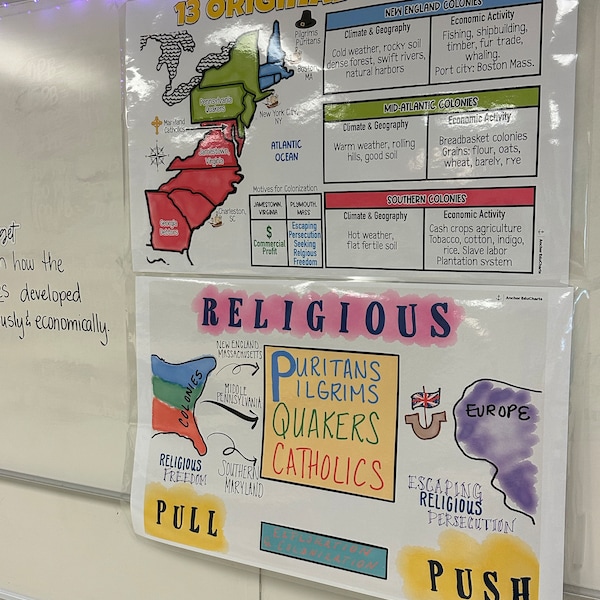 get
n how the
s developed
ously & economically.
13 ORIGINA
Pilgrims
Puritans
Boston,
MA
Pennsylvania
Quakers
New York City,
NY
Maryland
Catholics
Jamestown,
Virginia
ATLANTIC
OCEAN
Charleston,
SC
Georgia
Debtors
Motives for Colonization
JAMESTOWN, VIRGINIA
$
Commercial
Profit
PLYMOUTH, MASS
Escaping
Persecution
Seeking
Religious
Freedom
NEW ENGLAND COLONIES
Climate & Geography
Cold weather, rocky soil
dense forest, swift rivers,
natural harbors
Economic Activity
Fishing, shipbuilding,
timber, fur trade,
whaling.
Port city: Boston Mass.
MID-ATLANTIC COLONIES
Climate & Geography
Warm weather, rolling
hills, good soil
Economic Activity
Breadbasket colonies
Grains: flour, oats,
wheat, barely, rye
SOUTHERN COLONIES
Climate & Geography
Hot weather,
flat fertile soil
Economic Activity
Cash crops agriculture
Tobacco, cotton, indigo,
rice. Slave labor
Plantation system
Anchor EduCharts
Anchor EduCharts
RELIGIOUS
COLONIES
NEW ENGLAND
MASSACHUSETTS
MIDDLE
PENNSYLVANIA
SOUTHERN
MARYLAND
RELIGIOUS
FREEDOM
PURITANS
PILGRIMS
QUAKERS
CATHOLICS
EUROPE
ESCAPING
RELIGIOUS
PERSECUTION
PULL
PUSH